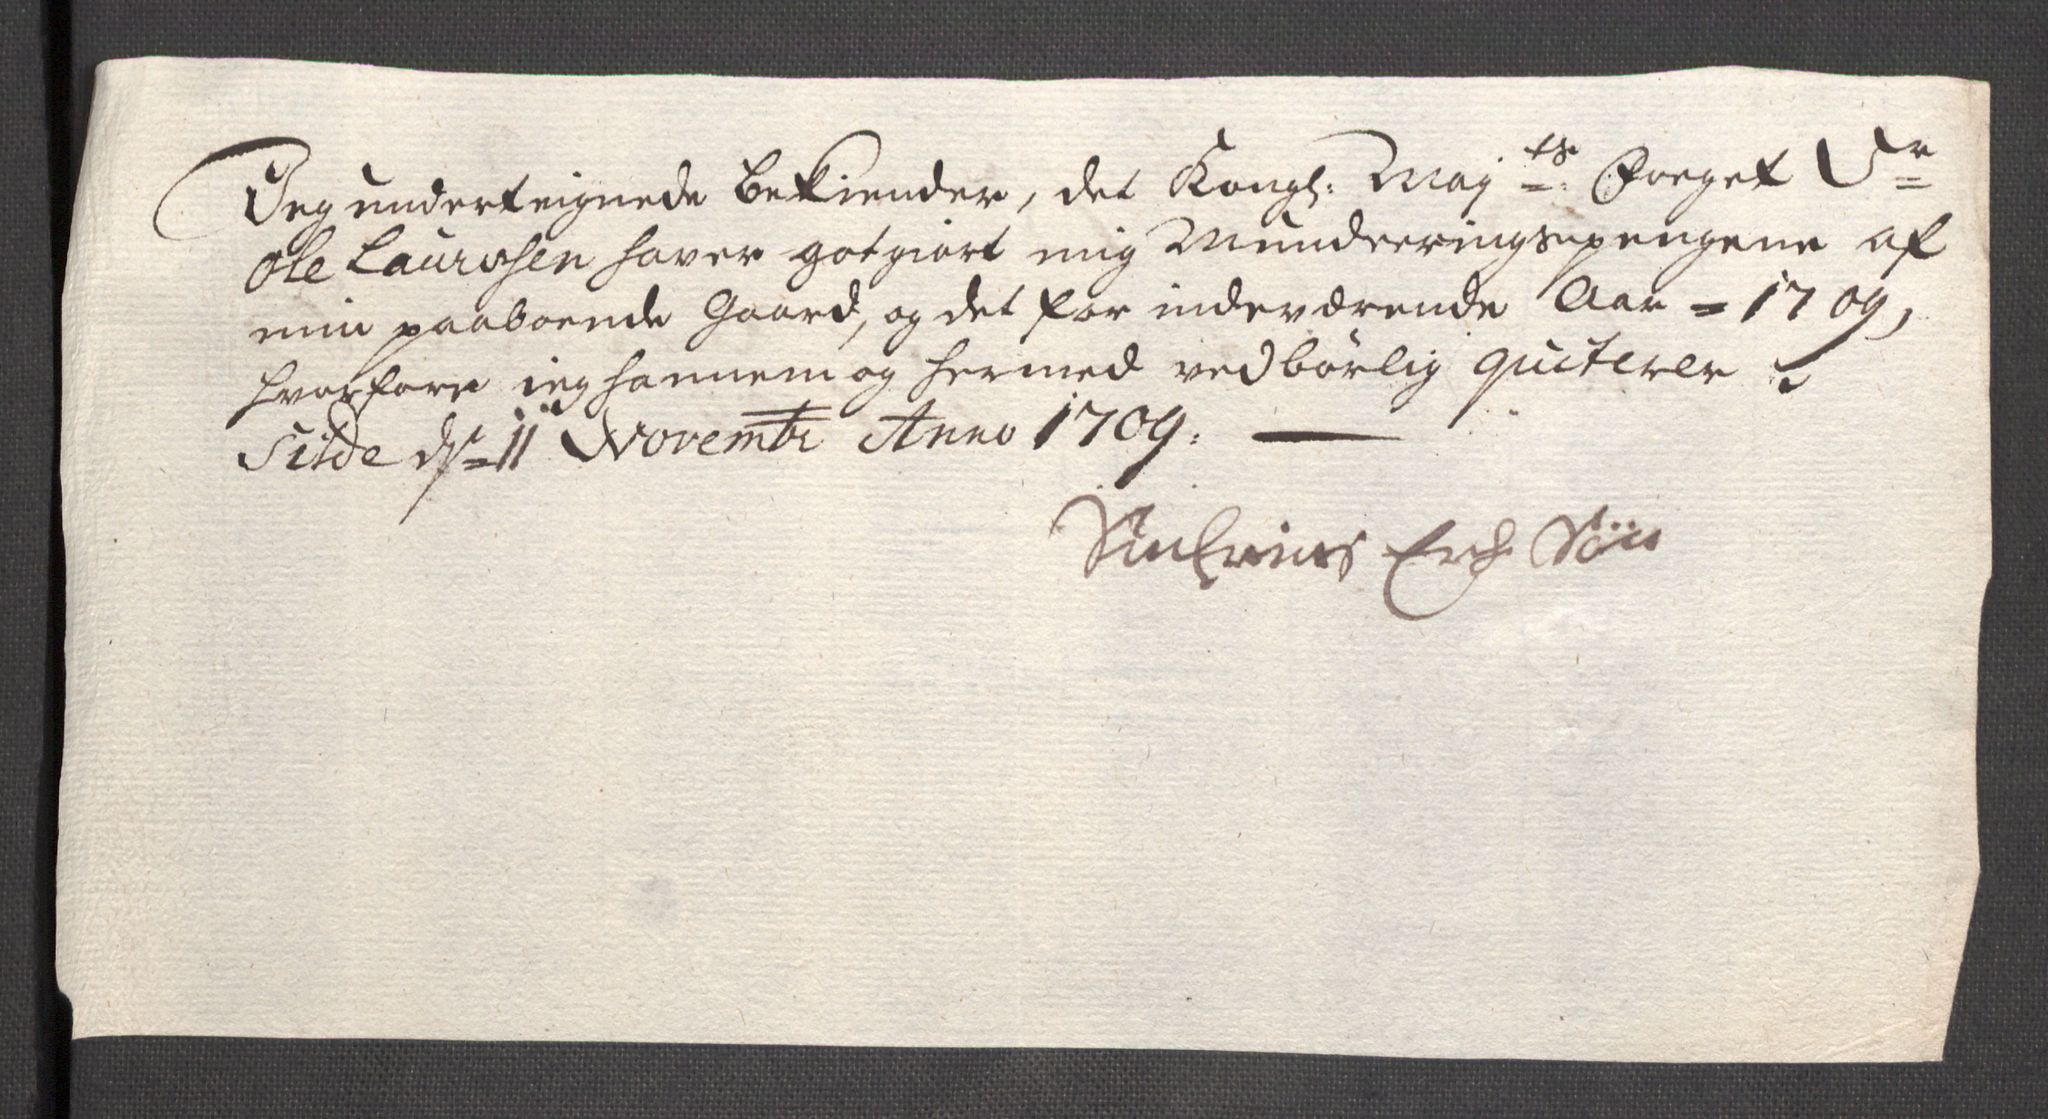 Jeg underteignede bekiender, det Kongl: Maj:ts Foeget Sr
Ole Laurssen haver gotgiort mig Munderingspengene af
min paaboende Gaard, og det for indeværende Aar = 1709,
hvorfore ieg hannem og hermed vedbörlig quiterer
Silde ds = 11 Novembr Anno 1709.